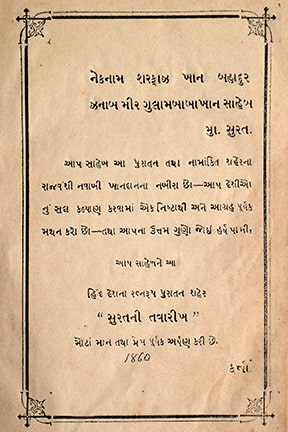 નેકનામ શરફાઝ ખાન બહાદુર
ઝનાબ મીર ગુલામબાબાખાન સાહેબ
મુા. સુરત.
આપ સાહેબ આ પુરાતન તથા નામાંકિત શહેરના
રાજવંશી નવાબી ખાનદાનના નબીરા છો—આપ દેશીઓ
નું સદા કલ્યાણ કરવામાં એક નિષ્ઠાથી અને આગ્રહ પુર્વક
મથન કરો છો—તથા આપના ઉત્તમ ગુણો જોઇ હર્ષ પામી,
આપ સાહેબને આ
હિંદ દેશના રત્નરૂપ પુરાતન શહેર
"સુરતની તવારીખ"
મોટાં માન તથા પ્રેમ પુર્વક અર્પણ કરી છે.
કર્તા.